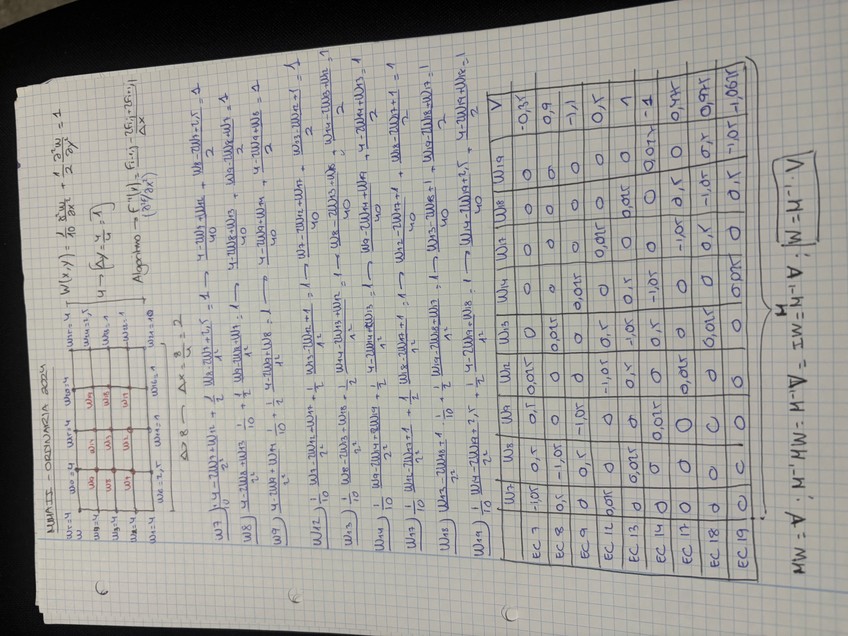 MMAII - ORDINARIA 2024
W(x,y) = 1/10 ∂²w/∂x² + 1/2 ∂²w/∂y² = 1
Δx = 8/4 = 2
4 → [Δy = 4/4 = 1]
Algoritmo →
W7) 1/10 (4-2W7+W12)/2² + 1/2 (W8-2W7+2,5)/1² = 1 → (4-2W7+W12)/40 + (W8-2W7+2,5)/2 = 1
W8) (4-2W8+W13)/2² 1/10 + 1/2 (W9-2W8+W7)/1² = 1 → (4-2W8+W13)/40 + (W9-2W8+W7)/2 = 1
W9) (4-2W9+W14)/2² 1/10 + 1/2 (4-2W9+W8)/1² = 1 → (4-2W9+W14)/40 + (4-2W9+W8)/2 = 1
W12) 1/10 (W7-2W12+W17)/2² + 1/2 (W13-2W12+1)/1² = 1 → (W7-2W12+W17)/40 + (W13-2W12+1)/2 = 1
W13) 1/10 (W8-2W13+W18)/2² + 1/2 (W14-2W13+W12)/1² = 1 → (W8-2W13+W18)/40 + (W14-2W13+W12)/2 = 1
W14) 1/10 (W9-2W14+W19)/2² + 1/2 (4-2W14+W13)/1² = 1 → (W9-2W14+W19)/40 + (4-2W14+W13)/2 = 1
W17) 1/10 (W12-2W17+1)/2² + 1/2 (W18-2W17+1)/1² = 1 → (W12-2W17+1)/40 + (W18-2W17+1)/2 = 1
W18) (W13-2W18+1)/2² 1/10 + 1/2 (W19-2W18+W17)/1² = 1 → (W13-2W18+1)/40 + (W19-2W18+W17)/2 = 1
W19) 1/10 (W14-2W19+2,5)/2² + 1/2 (4-2W19+W18)/1² = 1 → (W14-2W19+2,5)/40 + (4-2W19+W18)/2 = 1
W7 W8 W9 W12 W13 W14 W17 W18 W19 V
EC 7 -1,05 0,5 0,5 0,025 0 0 0 0 0 -0,35
EC 8 0,5 -1,05 0 0 0,025 0 0 0 0 0,9
EC 9 0 0,5 -1,05 0 0 0,025 0 0 0 -1,1
EC 12 0,025 0 0 -1,05 0,5 0 0,025 0 0 0,5
EC 13 0 0,025 0 0,5 -1,05 0,5 0 0,025 0 1
EC 14 0 0 0,025 0 0,5 -1,05 0 0 0,025 -1
EC 17 0 0 0 0,025 0 0 -1,05 0,5 0 0,475
EC 18 0 0 0 0 0,025 0 0,5 -1,05 0,5 0,975
EC 19 0 0 0 0 0 0,025 0 0,5 -1,05 -1,0625
M
MW = V ; M⁻¹·MW = M⁻¹·V = IW = M⁻¹·V ; W = M⁻¹·V